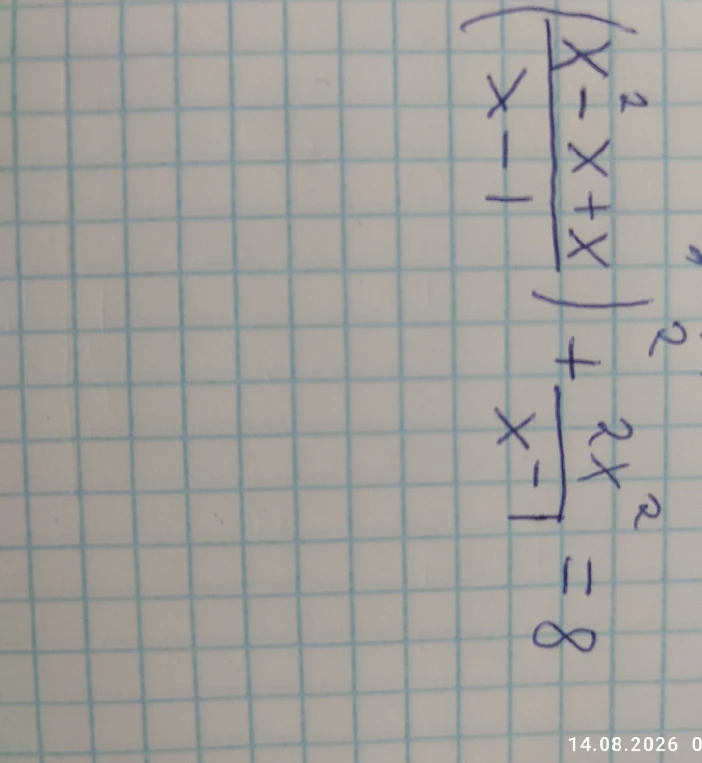 (x² - x + x / x - 1)² + 2x² / x - 1 = 8
14.08.2026